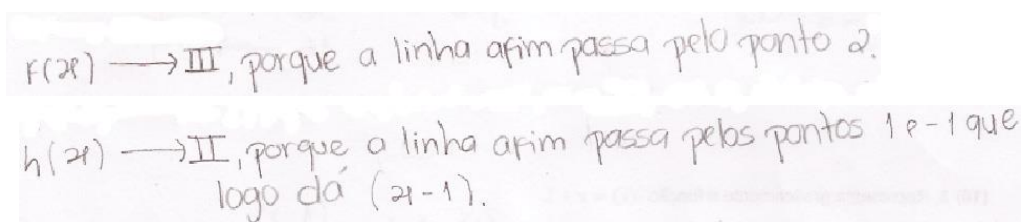 F(x) → III, porque a linha afim passa pelo ponto 2.
h(x) → II, porque a linha afim passa pelos pontos 1 e -1 que
logo dá (x-1).